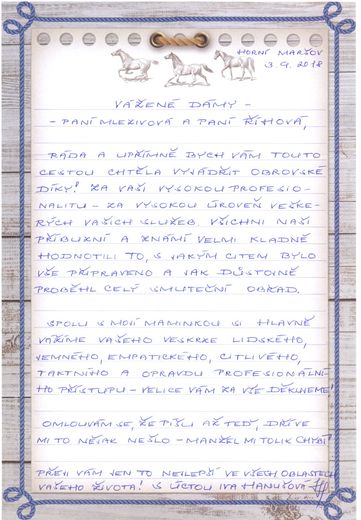 HORNÍ MARŠOV
3.9.2018
VÁŽENÉ DÁMY -
- PANÍ MLEZIVOVÁ A PANÍ ŘÍHOVÁ,
RÁDA A UPŘÍMNĚ BYCH VÁM TOUTO
CESTOU CHTĚLA VYJÁDŘIT OBROVSKÉ
DÍKY! ZA VAŠI VYSOKOU PROFESIO-
NALITU - ZA VYSOKOU ÚROVEŇ VEŠKE-
RÝCH VAŠICH SLUŽEB. VŠICHNI NAŠI
PŘÍBUZNÍ A ZNÁMÍ VELMI KLADNĚ
HODNOTILI TO, S JAKÝM CITEM BYLO
VŠE PŘIPRAVENO A JAK DŮSTOJNĚ
PROBĚHL CELÝ SMUTEČNÍ OBŘAD.
SPOLU S MOJÍ MAMINKOU SI HLAVNĚ
VÁŽÍME VAŠEHO VESKRZE LIDSKÉHO,
JEMNÉHO, EMPATICKÉHO, CITLIVÉHO,
TAKTNÍHO A OPRAVDU PROFESIONÁLNÍ-
HO PŘÍSTUPU - VELICE VÁM ZA VŠE DĚKUJEME!
OMLOUVÁM SE, ŽE PÍŠU AŽ TEĎ, DŘÍVE
MI TO NĚJAK NEŠLO - MANŽEL MI TOLIK CHYBÍ!
PŘEJI VÁM JEN TO NEJLEPŠÍ VE VŠECH OBLASTECH
VAŠEHO ŽIVOTA! S ÚCTOU IVA HANUŠOVÁ